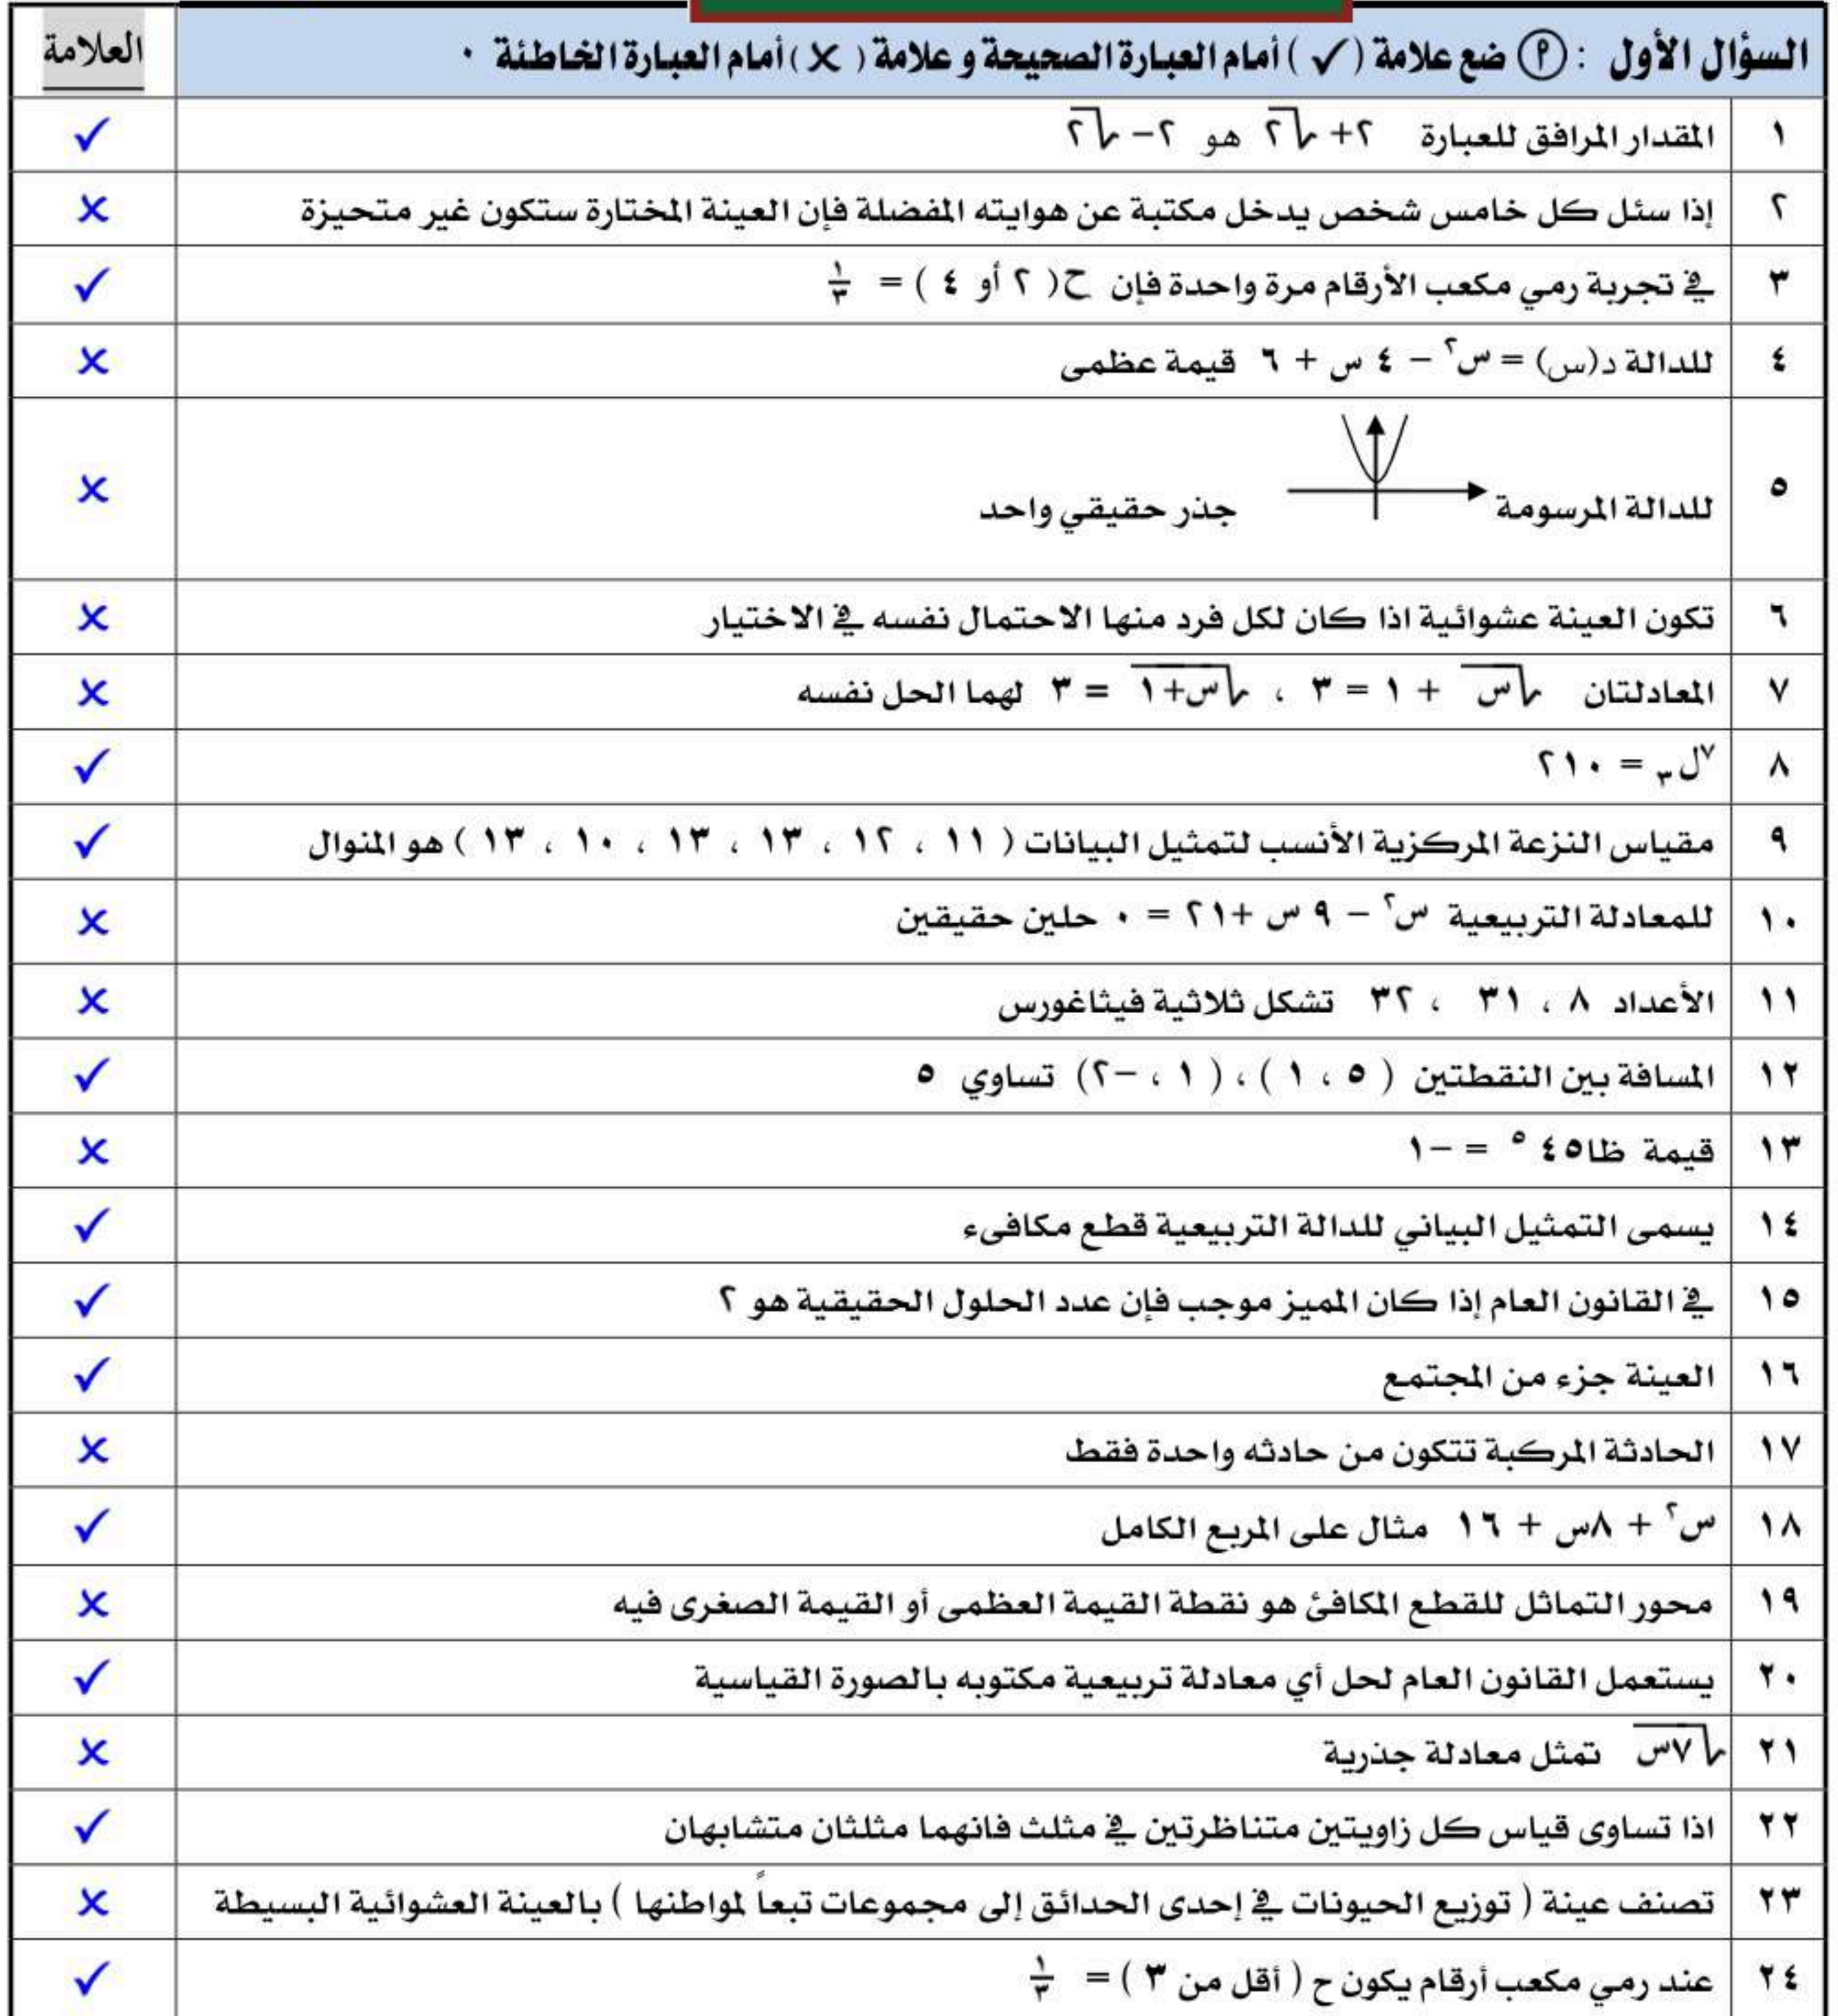 السؤال الأول : (أ) ضع علامة ( ✓ ) أمام العبارة الصحيحة و علامة ( ✗ ) أمام العبارة الخاطئة ٠ العلامة
١ المقدار المرافق للعبارة ٢+ √٢ هو ٢− √٢ ✓
٢ إذا سئل كل خامس شخص يدخل مكتبة عن هوايته المفضلة فإن العينة المختارة ستكون غير متحيزة ✗
٣ في تجربة رمي مكعب الأرقام مرة واحدة فإن ح( ٢ أو ٤ ) = ١/٣ ✓
٤ للدالة د(س) = س٢ − ٤ س + ٦ قيمة عظمى ✗
٥ للدالة المرسومة جذر حقيقي واحد ✗
٦ تكون العينة عشوائية اذا كان لكل فرد منها الاحتمال نفسه في الاختيار ✗
٧ المعادلتان √س + ١ = ٣ ، √(س+١) = ٣ لهما الحل نفسه ✗
٨ ٧ل٣ = ٢١٠ ✓
٩ مقياس النزعة المركزية الأنسب لتمثيل البيانات ( ١١ ، ١٢ ، ١٣ ، ١٣ ، ١٠ ، ١٣ ) هو المنوال ✓
١٠ للمعادلة التربيعية س٢ − ٩ س +٢١ = ٠ حلين حقيقين ✗
١١ الأعداد ٨ ، ٣١ ، ٣٢ تشكل ثلاثية فيثاغورس ✗
١٢ المسافة بين النقطتين ( ٥ ، ١ ) ، ( ١ ، −٢) تساوي ٥ ✓
١٣ قيمة ظا٤٥ ° = −١ ✗
١٤ يسمى التمثيل البياني للدالة التربيعية قطع مكافىء ✓
١٥ في القانون العام إذا كان المميز موجب فإن عدد الحلول الحقيقية هو ٢ ✓
١٦ العينة جزء من المجتمع ✓
١٧ الحادثة المركبة تتكون من حادثه واحدة فقط ✗
١٨ س٢ + ٨س + ١٦ مثال على المربع الكامل ✓
١٩ محور التماثل للقطع المكافئ هو نقطة القيمة العظمى أو القيمة الصغرى فيه ✗
٢٠ يستعمل القانون العام لحل أي معادلة تربيعية مكتوبه بالصورة القياسية ✓
٢١ √٧س تمثل معادلة جذرية ✗
٢٢ اذا تساوى قياس كل زاويتين متناظرتين في مثلث فانهما مثلثان متشابهان ✓
٢٣ تصنف عينة ( توزيع الحيونات في إحدى الحدائق إلى مجموعات تبعاً لمواطنها ) بالعينة العشوائية البسيطة ✗
٢٤ عند رمي مكعب أرقام يكون ح ( أقل من ٣ ) = ١/٣ ✓